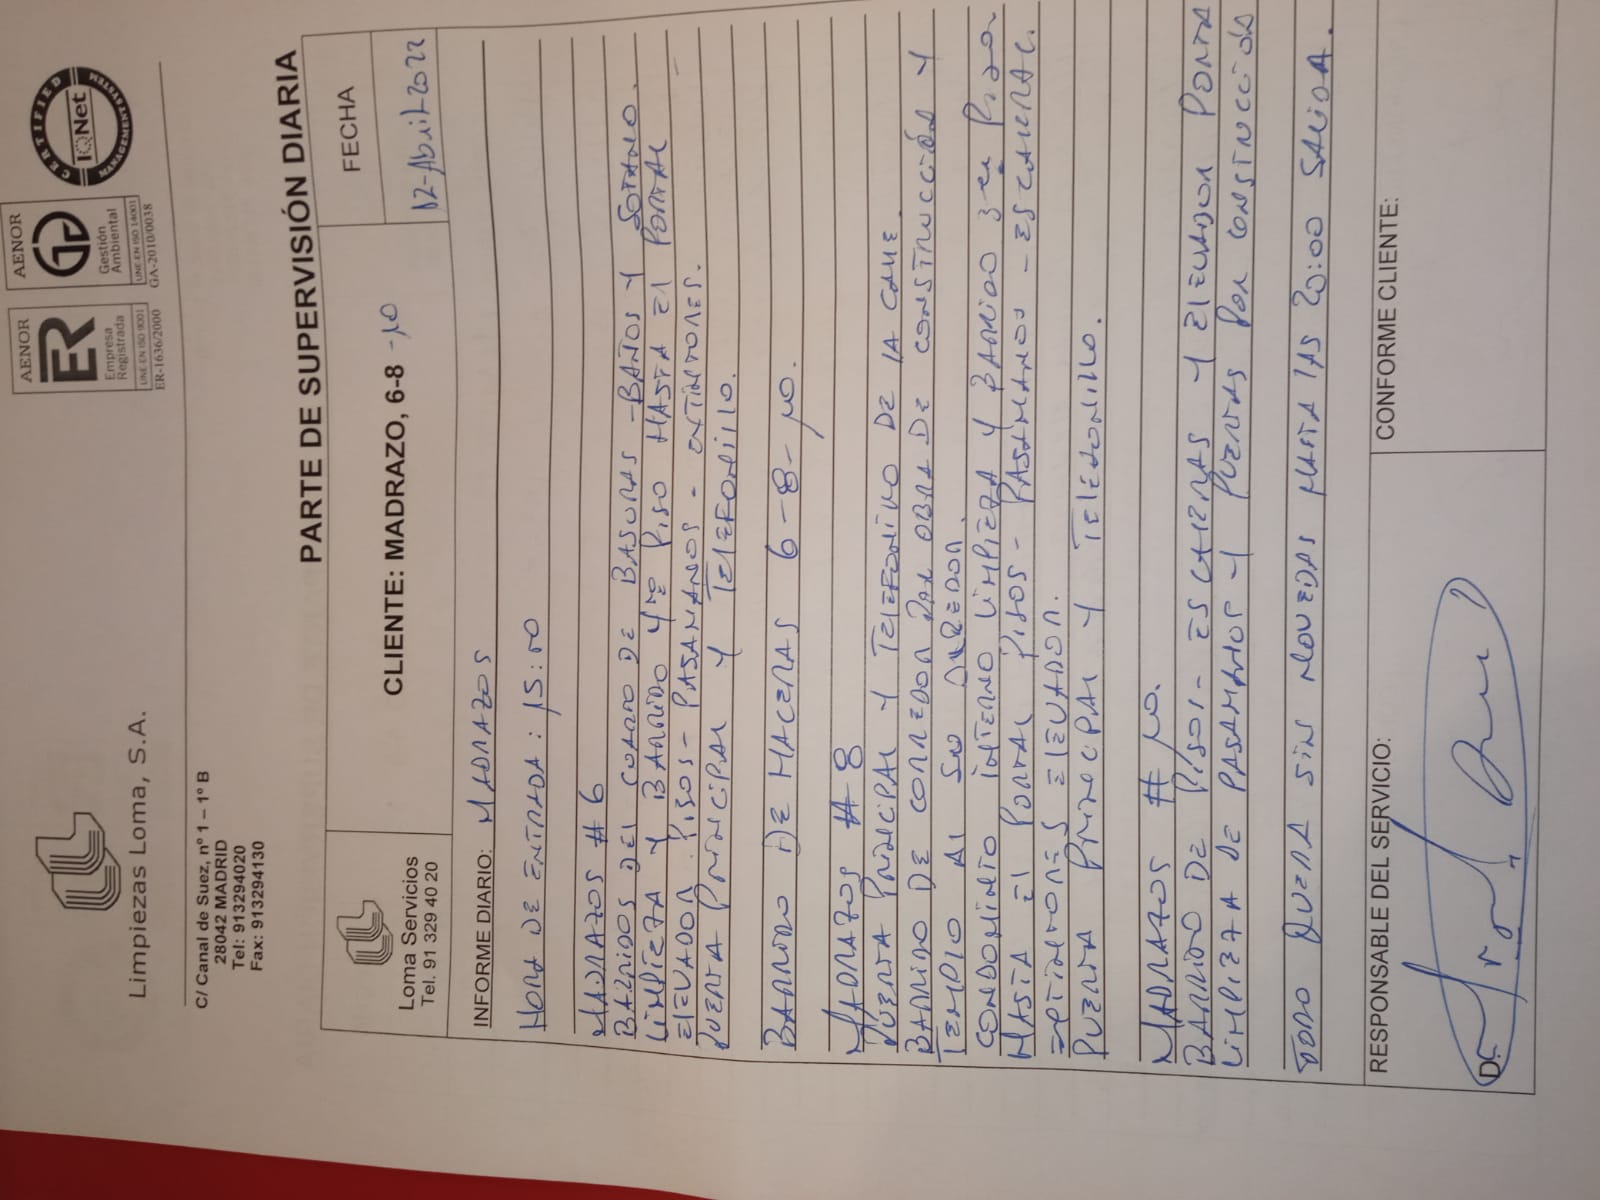 Limpiezas Loma, S.A.
AENOR
ER
Empresa
Registrada
UNE-EN ISO 9001
ER-1636/2000
AENOR
Gestión
Ambiental
UNE-EN ISO 14001
GA-2010/0038
CERTIFIED
IQNet
MANAGEMENT SYSTEM
C/ Canal de Suez, nº 1 – 1º B
28042 MADRID
Tel: 913294020
Fax: 913294130
PARTE DE SUPERVISIÓN DIARIA
Loma Servicios
Tel. 91 329 40 20
CLIENTE: MADRAZO, 6-8 -10
FECHA
12-Abril-2022
INFORME DIARIO: MADRAZOS
HORA DE ENTRADA: 15:00
MADRAZOS # 6
BARRIDOS DEL CUARTO DE BASURAS - BAÑOS Y SOTANO.
LIMPIEZA Y BARRIDO 4TO PISO HASTA EL PORTAL
ELEVADOR. PISOS - PASAMANOS - EXTINTORES.
PUERTA PRINCIPAL Y TELEFONILLO.
BARRIDO DE HACERAS 6-8-10.
MADRAZOS # 8
PUERTA PRINCIPAL Y TELEFONIVO DE LA CALLE.
BARRIDO DE CORREDOR POR OBRA DE CONSTRUCCIÓN Y
TEMPLO AL SU
CONDOMINIO INTERNO LIMPIEZA Y BARRIDO 3ER PISO.
HASTA EL PORTAL PISOS - PASAMANOS - ESCALERAS.
EXTINTORES ELEVADOR.
PUERTA PRINCIPAL Y TELEDONILLO.
MADRAZOS # 10.
BARRIDO DE PISOS - ESCALERAS Y ELEVADOR PORTA
LIMPIEZA DE PASAMANOS Y PUERTAS POR CONSTRUCCIÓN
TODO QUEDA SIN NOVEDAD HASTA LAS 20:00 SALIDA.
RESPONSABLE DEL SERVICIO:
CONFORME CLIENTE:
D.